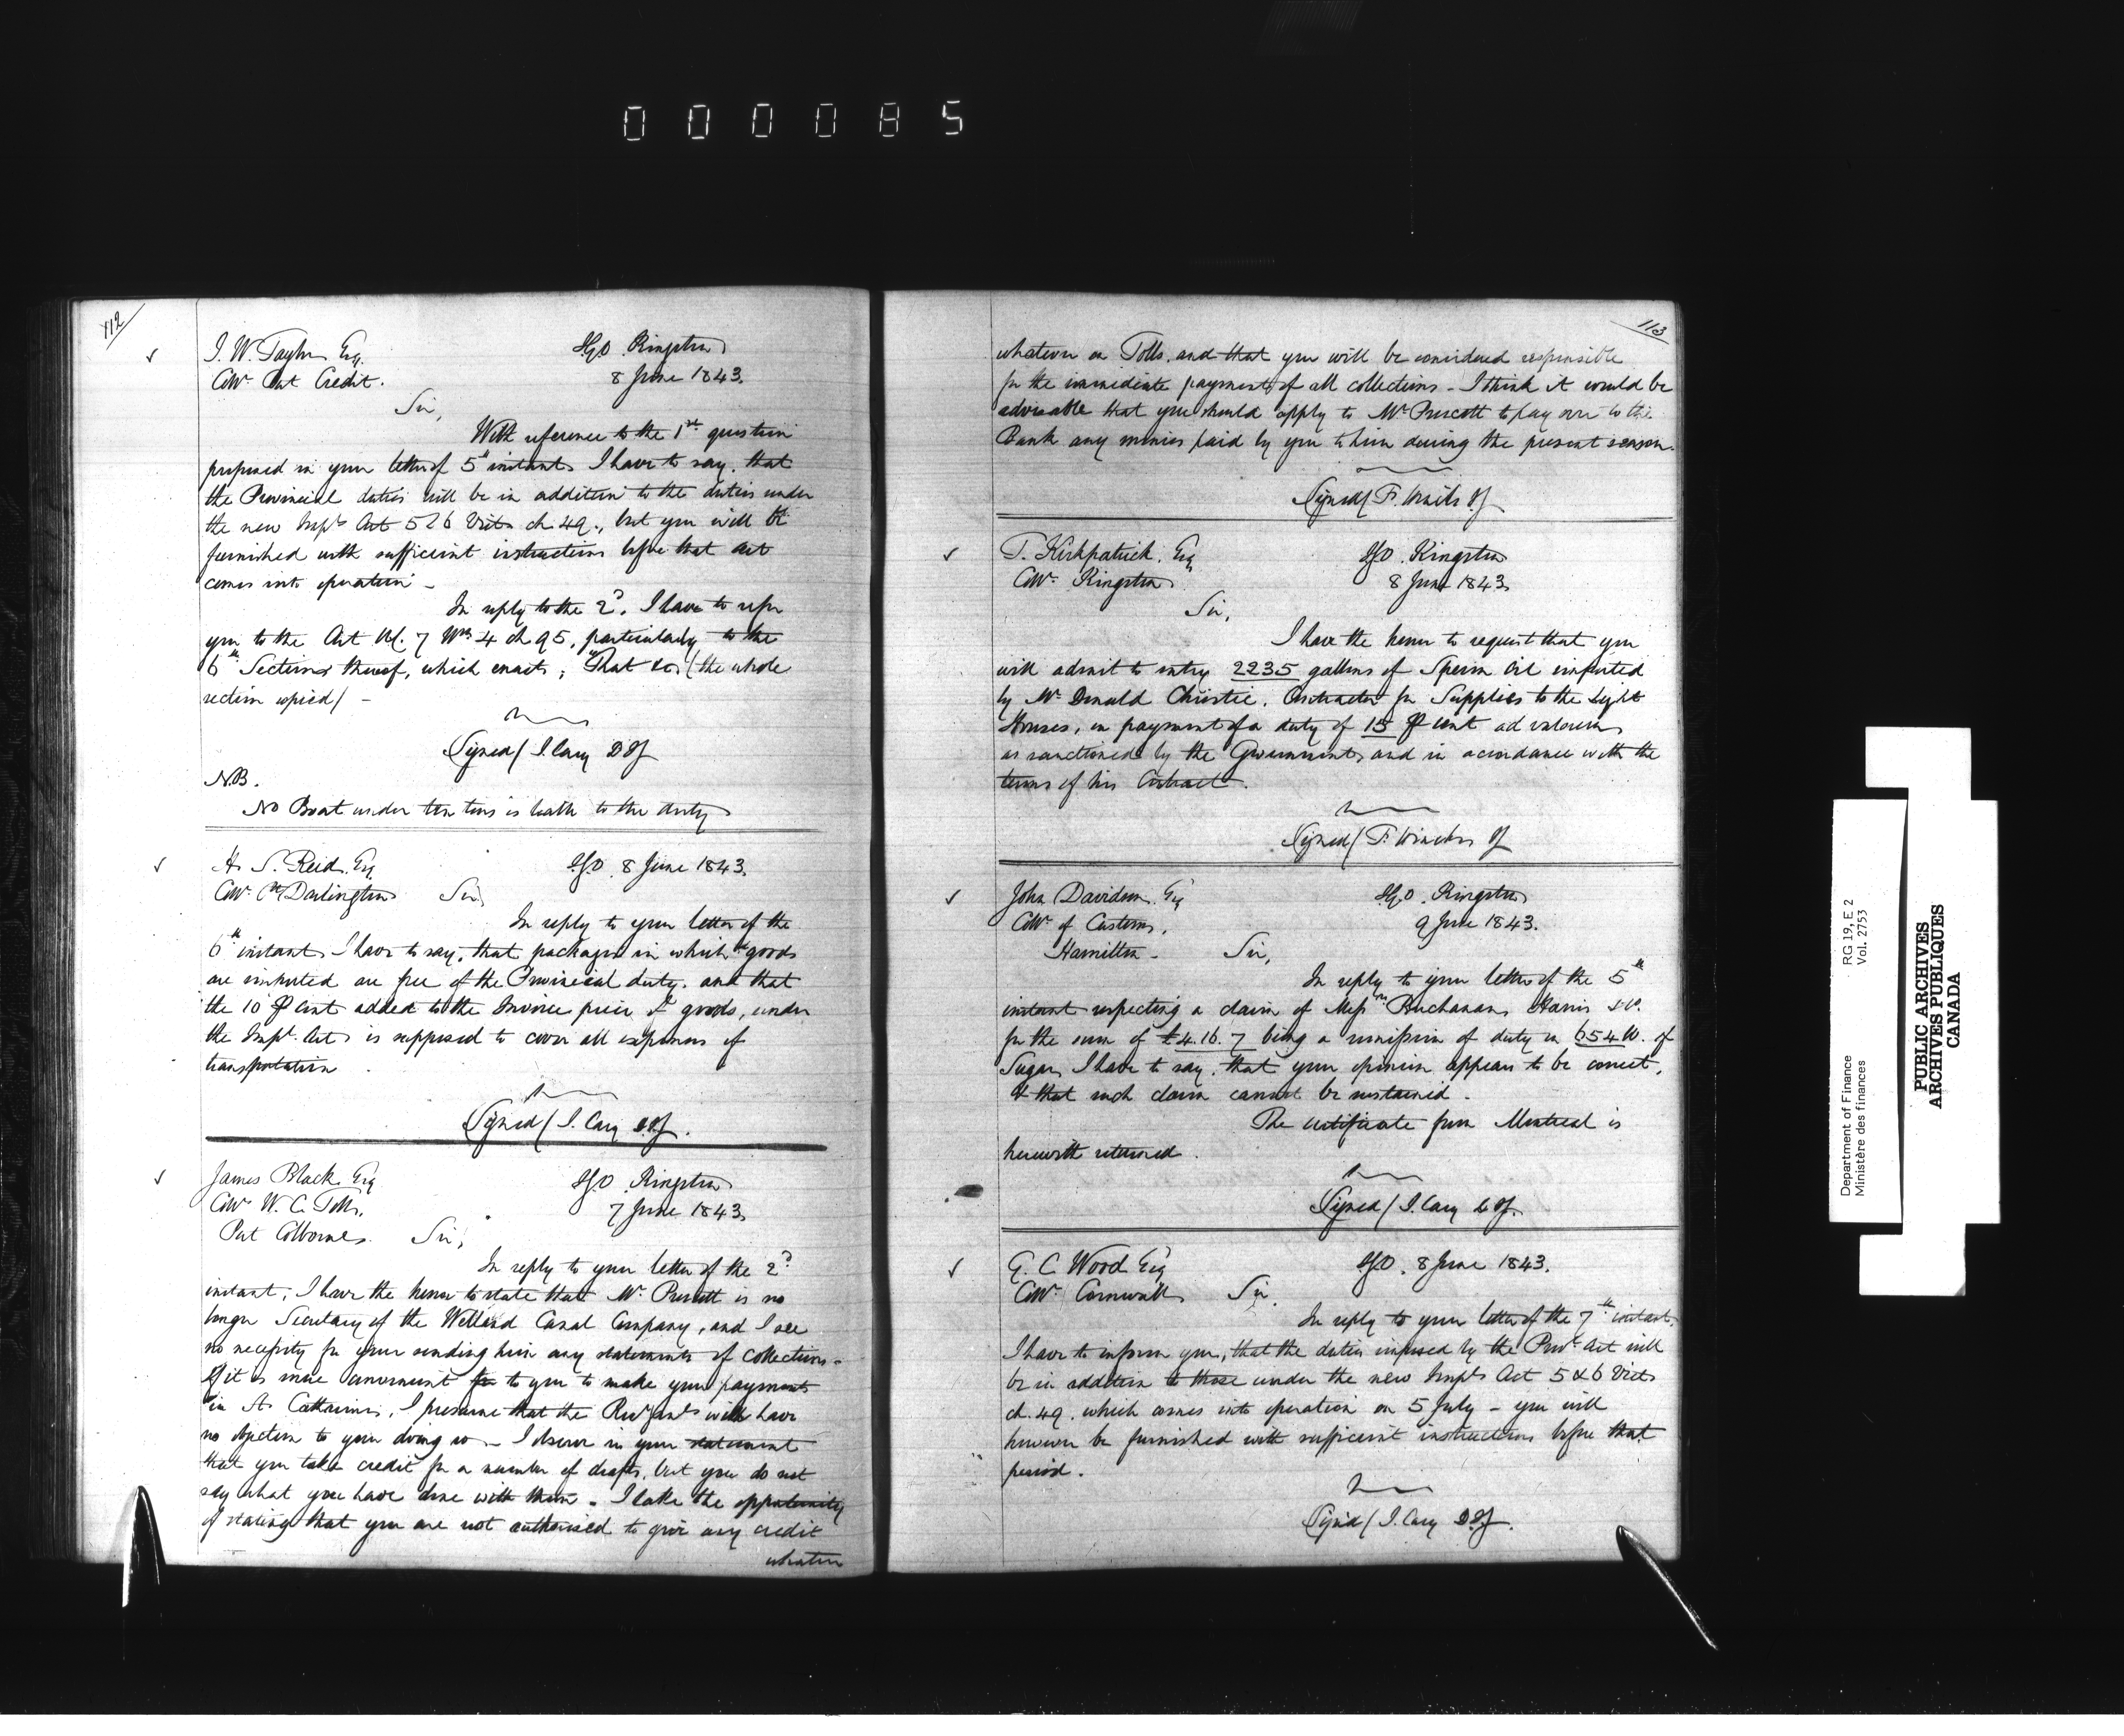 000085
112
J. W. Taylor Esq. IGO. Kingston
Collr. Port Credit. 8 June 1843.
Sir,
With reference to the 1st question
proposed in your letter of 5th instant I have to say, that
the Provincial duties will be in addition to the duties under
the new Impl. Act 5 & 6 Vict. ch. 49., but you will be
furnished with sufficient instructions before that Act
comes into operation -
In reply to the 2d. I have to refer
you to the Act 7 Wm 4 ch 95, particularly to the
6th Section thereof, which enacts, "That &c. (the whole
section copied) -
Signed/ J. Cary D IG
N.B.
No Boat under ten tons is liable to the duty
H. S. Reid. Esq. IGO. 8 June 1843.
Collr. Darlington Sir,
In reply to your letter of the
6th instant I have to say, that packages in which goods
are imported are free of the Provincial duty, and that
the 10 P cent added to the Invoice price of goods, under
the Impl. Act is supposed to cover all expenses of
transportation.
Signed/ J. Cary D.IG.
James Black Esq IGO. Kingston
Collr W. C. Tolls, 7 June 1843.
Port Colborne. Sir,
In reply to your letter of the 2d
instant, I have the honor to state that Mr. Prescott is no
longer Secretary of the Welland Canal Company, and I see
no necessity for your sending him any statements of Collections -
If it is more convenient for to you to make your payments
in St Catharines, I presume that the Recr. Genl. will have
no objection to your doing so - I observe in your statement
that you take credit for a number of drafts, but you do not
say what you have done with them. I take the opportunity
of stating that you are not authorised to give any credit
whatever
113
whatever on Tolls. and that you will be considered responsible
for the immediate payment of all collections - I think it would be
advisable that you should apply to Mr Prescott to pay over to the
Bank any monies paid by you to him during the present season.
Signed/ F. Hincks IG
T. Kirkpatrick. Esq IGO. Kingston
Collr. Kingston 8 June 1843.
Sir,
I have the honor to request that you
will admit to entry 2235 gallons of Sperm Oil imported
by Mr. Donald Christie, Contractor for Supplies to the Light
Houses, on payment of a duty of 15 P cent ad valorem
as sanctioned by the Government and in accordance with the
terms of his Contract.
Signed/ F. Hincks IG
John Davidson. Esq IGO. Kingston
Collr of Customs, 9 June 1843.
Hamilton - Sir,
In reply to your letter of the 5th
instant respecting a claim of Messrs Buchanan, Harris & Co.
for the sum of £4.16.7 being a remission of duty on 654 lb. of
Sugar, I have to say, that your opinion appears to be correct,
& that such claim cannot be sustained -
The certificate from Montreal is
herewith returned.
Signed/ J. Cary D IG.
G. C. Wood Esq IGO. 8 June 1843.
Collr. Cornwall Sir.
In reply to your letter of the 7th instant.
I have to inform you, that the duties imposed by the Provl. Act will
be in addition to those under the new Impl. Act 5 & 6 Vict
ch. 49, which comes into operation on 5 July - you will
however be furnished with sufficient instructions before that
period.
Signed/ J. Cary D.IG.
Department of Finance RG 19, E 2
Ministère des finances Vol. 2753
PUBLIC ARCHIVES
ARCHIVES PUBLIQUES
CANADA